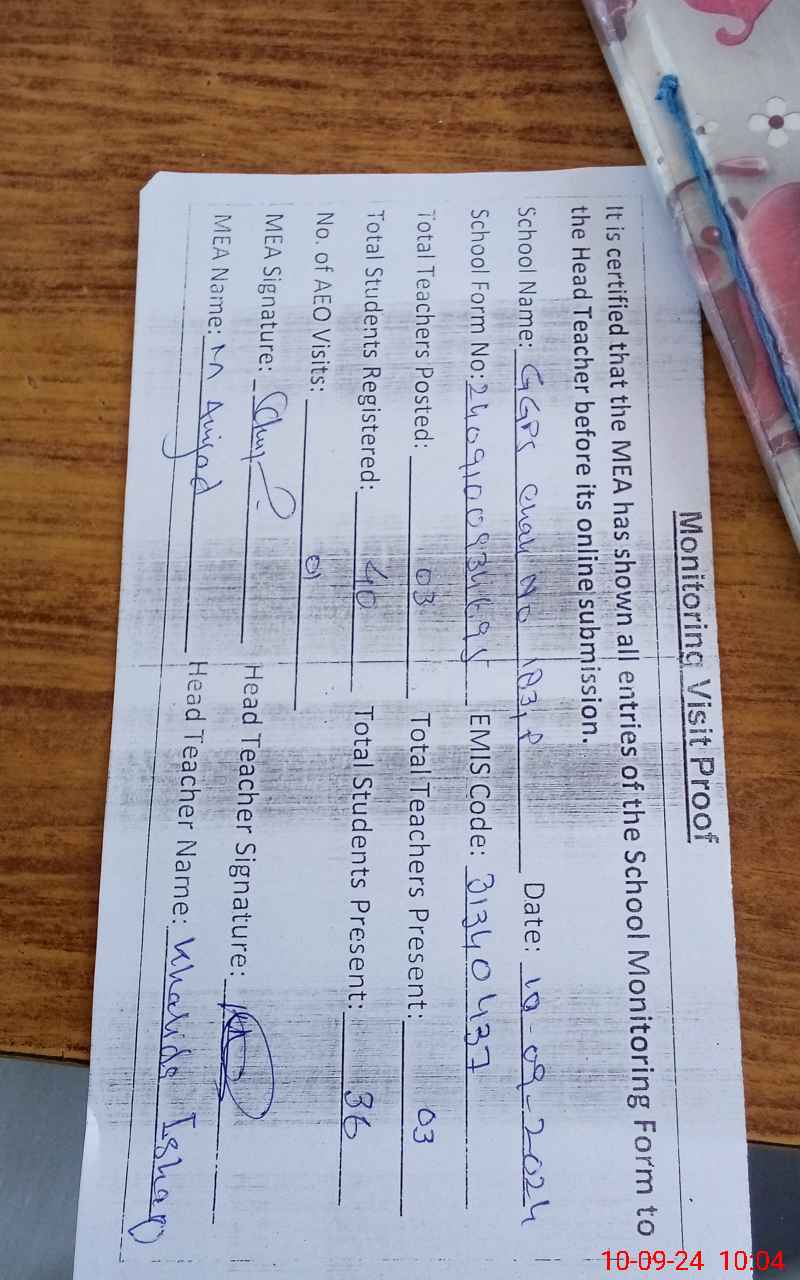 Monitoring Visit Proof
It is certified that the MEA has shown all entries of the School Monitoring Form to
the Head Teacher before its online submission.
School Name: GGPS Chak No 103, P Date: 10-09-2024
School Form No: EMIS Code: 31340437
Total Teachers Posted: 03 Total Teachers Present: 03
Total Students Registered: 40 Total Students Present: 36
No. of AEO Visits: 01
MEA Signature: Head Teacher Signature:
MEA Name: M Amjad Head Teacher Name: Khalida Ishaq
10-09-24 10:04